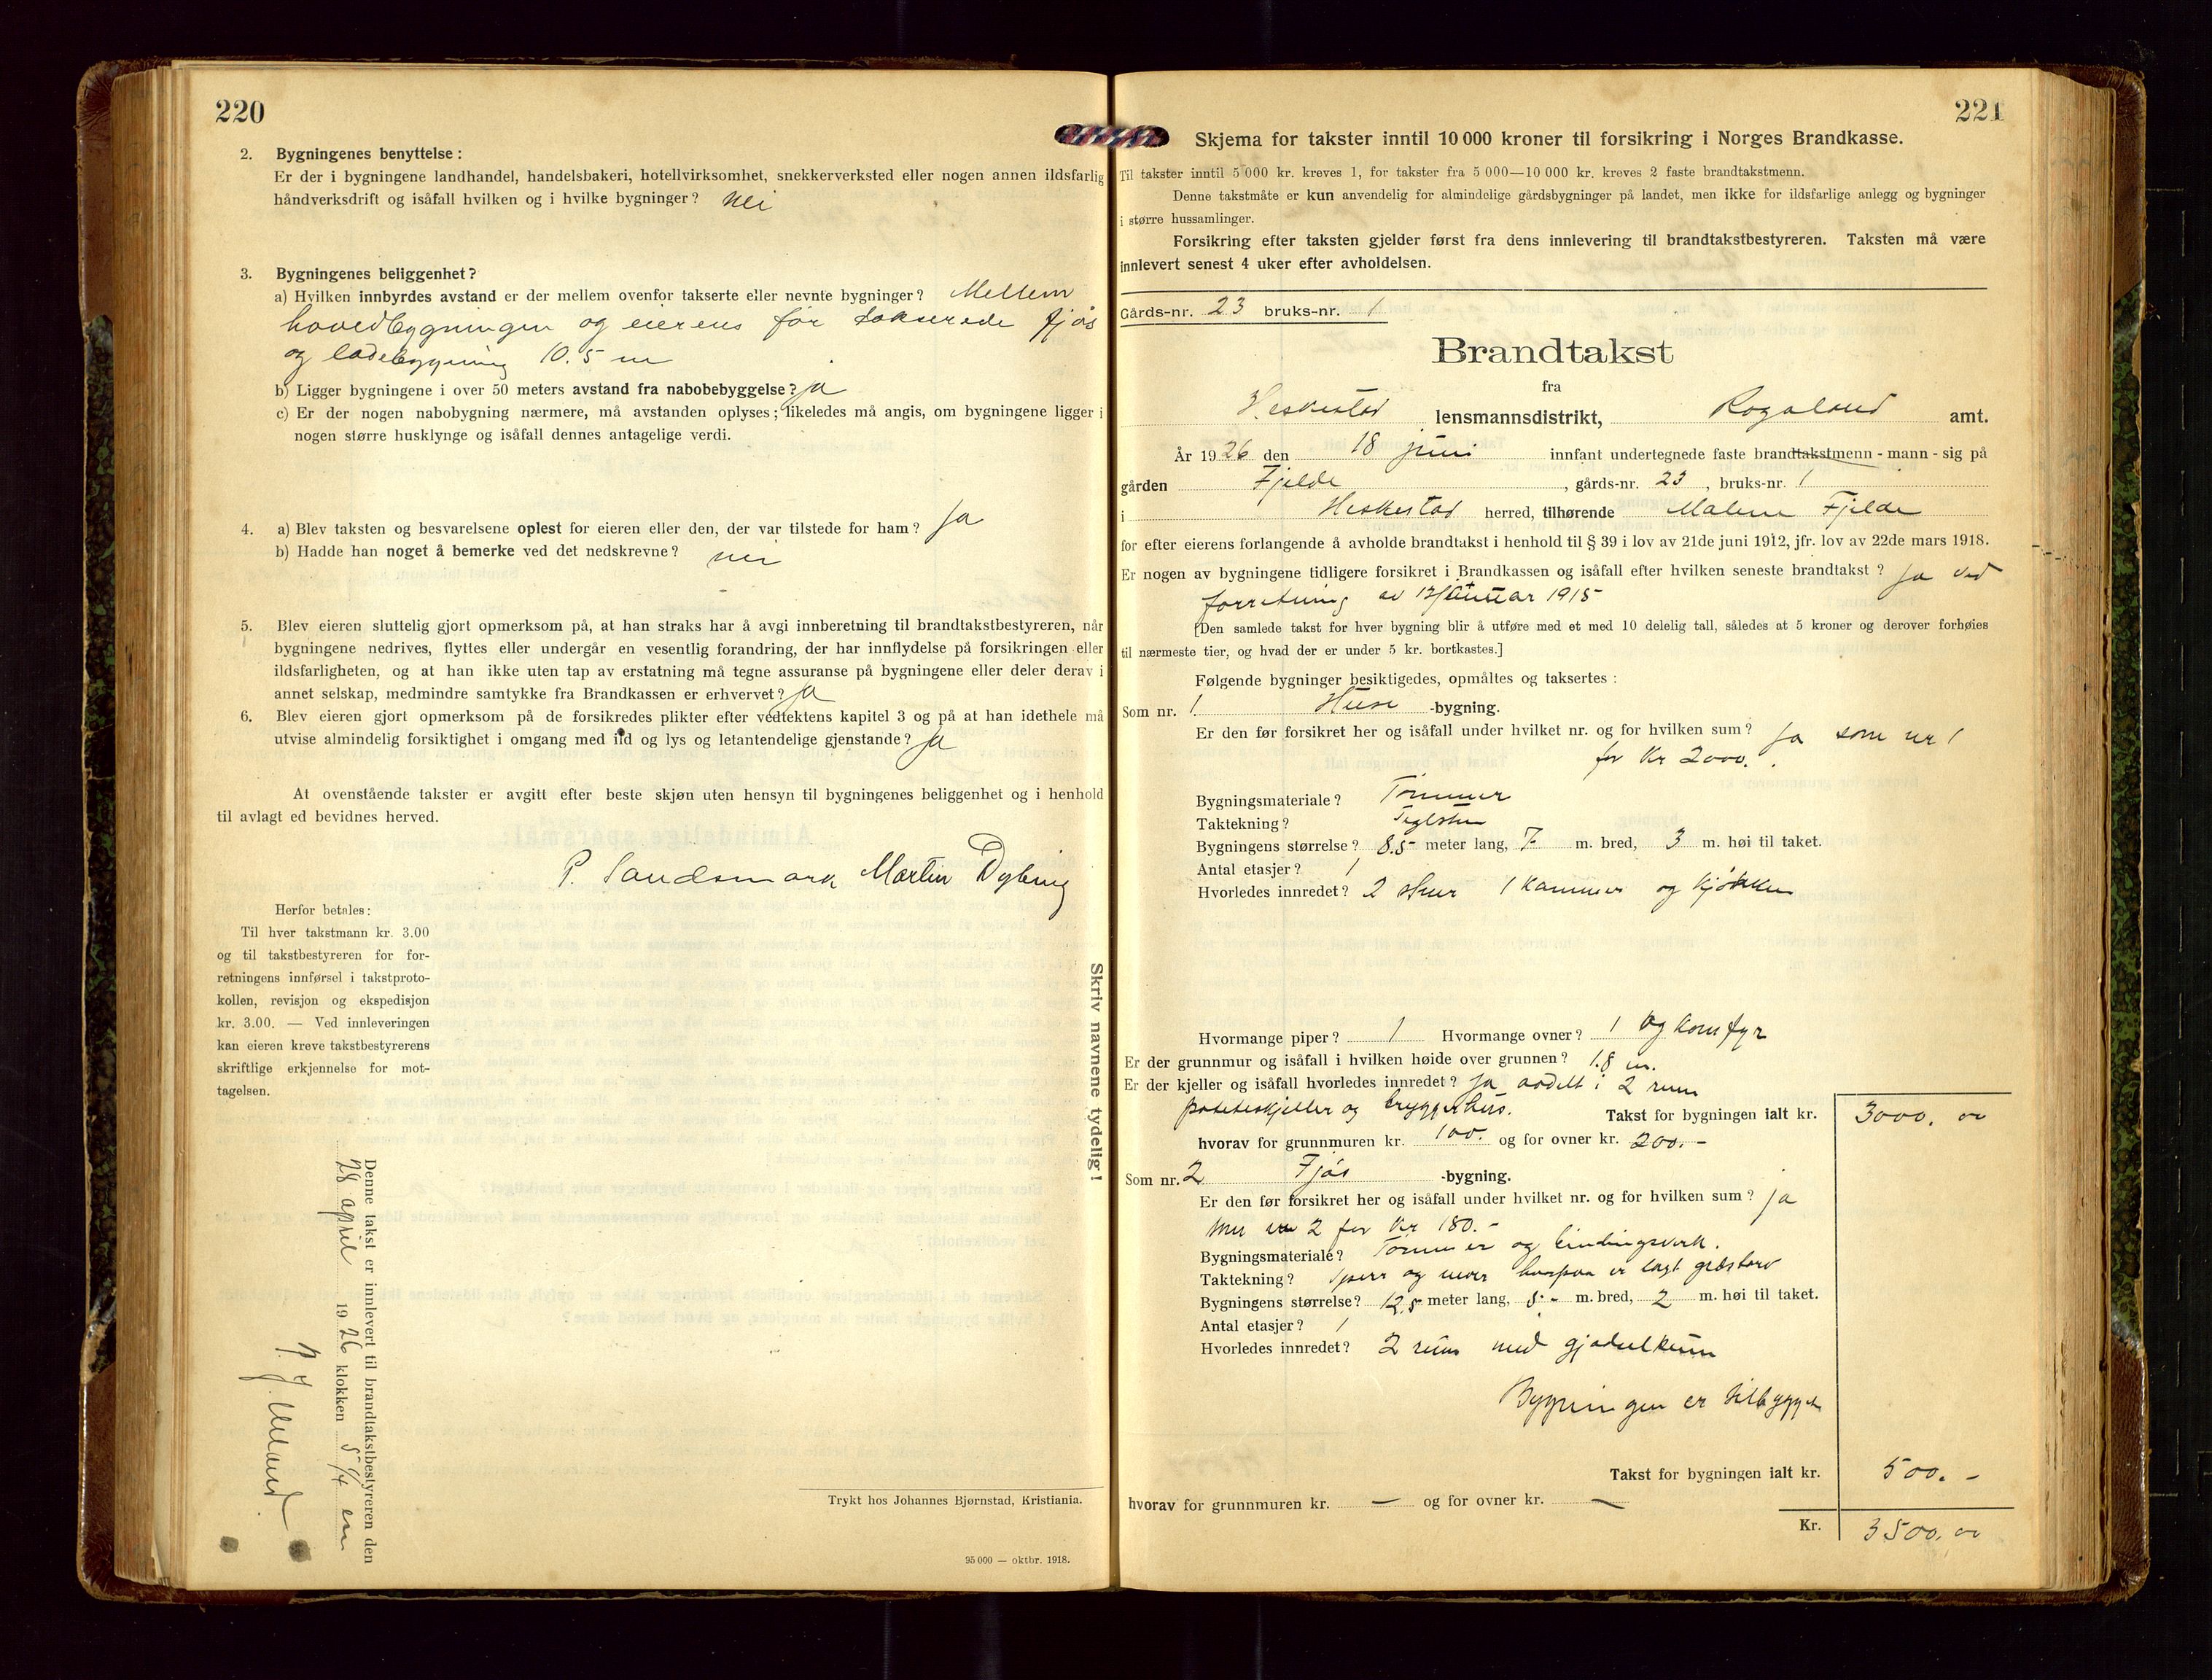 220
2. Bygningenes benyttelse:
Er der i bygningene landhandel, handelsbakeri, hotellvirksomhet, snekkerverksted eller nogen annen ildsfarlig
håndverksdrift og isåfall hvilken og i hvilke bygninger? Nei
3. Bygningenes beliggenhet?
a) Hvilken innbyrdes avstand er der mellem ovenfor takserte eller nevnte bygninger? Mellem
hovedbygningen og eierens før takserede fjøs
og ladebygning 10.5 m
b) Ligger bygningene i over 50 meters avstand fra nabobebyggelse? ja
c) Er der nogen nabobygning nærmere, må avstanden oplyses; likeledes må angis, om bygningene ligger i
nogen større husklynge og isåfall dennes antagelige verdi.
4. a) Blev taksten og besvarelsene oplest for eieren eller den, der var tilstede for ham? Ja
b) Hadde han noget å bemerke ved det nedskrevne? nei
5. Blev eieren sluttelig gjort opmerksom på, at han straks har å avgi innberetning til brandtakstbestyreren, når
bygningene nedrives, flyttes eller undergår en vesentlig forandring, der har innflydelse på forsikringen eller
ildsfarligheten, og at han ikke uten tap av erstatning må tegne assuranse på bygningene eller deler derav i
annet selskap, medmindre samtykke fra Brandkassen er erhvervet? Ja
6. Blev eieren gjort opmerksom på de forsikredes plikter efter vedtektens kapitel 3 og på at han idethele må
utvise almindelig forsiktighet i omgang med ild og lys og letantendelige gjenstande? Ja
At ovenstående takster er avgitt efter beste skjøn uten hensyn til bygningenes beliggenhet og i henhold
til avlagt ed bevidnes herved.
P. Sandsmark Martin Dybing
Herfor betales:
Til hver takstmann kr. 3.00
og til takstbestyreren for for-
retningens innførsel i takstproto-
kollen, revisjon og ekspedisjon
kr. 3.00. — Ved innleveringen
kan eieren kreve takstbestyrerens
skriftlige erkjennelse for mot-
tagelsen.
Skriv navnene tydelig!
Denne takst er innlevert til brandtakstbestyreren den
28 april 1926 klokken 5 1/4 em
Trykt hos Johannes Bjørnstad, Kristiania.
95 000 — oktbr. 1918.
221
Skjema for takster inntil 10 000 kroner til forsikring i Norges Brandkasse.
Til takster inntil 5 000 kr. kreves 1, for takster fra 5 000—10 000 kr. kreves 2 faste brandtakstmenn.
Denne takstmåte er kun anvendelig for almindelige gårdsbygninger på landet, men ikke for ildsfarlige anlegg og bygninger
i større hussamlinger.
Forsikring efter taksten gjelder først fra dens innlevering til brandtakstbestyreren. Taksten må være
innlevert senest 4 uker efter avholdelsen.
Gårds-nr. 23 bruks-nr. 1
Brandtakst
fra
Heskestad lensmannsdistrikt, Rogaland amt.
År 1926 den 18 juni innfant undertegnede faste brandtakstmenn - mann - sig på
gården Fjelde, gårds-nr. 23, bruks-nr. 1
i Heskestad herred, tilhørende Malene Fjelde
for efter eierens forlangende å avholde brandtakst i henhold til § 39 i lov av 21de juni 1912, jfr. lov av 22de mars 1918.
Er nogen av bygningene tidligere forsikret i Brandkassen og isåfall efter hvilken seneste brandtakst? Ja ved
forretning av 12 Januar 1915
[Den samlede takst for hver bygning blir å utføre med et med 10 delelig tall, således at 5 kroner og derover forhøies
til nærmeste tier, og hvad der er under 5 kr. bortkastes.]
Følgende bygninger besiktigedes, opmåltes og taksertes:
Som nr. 1. Huse -bygning.
Er den før forsikret her og isåfall under hvilket nr. og for hvilken sum? Ja som nr 1
for Kr 2000.
Bygningsmateriale? Tømmer
Taktekning? Teglsten
Bygningens størrelse? 8.5 meter lang, 7- m. bred, 3 m. høi til taket.
Antal etasjer? 1
Hvorledes innredet? 2 stuer 1 kammer og kjøkken
Hvormange piper? 1 Hvormange ovner? 1 og komfyr
Er der grunnmur og isåfall i hvilken høide over grunnen? 1.8 m.
Er der kjeller og isåfall hvorledes innredet? Ja avdelt i 2 rum
poteteskjeller og bryggerhus. Takst for bygningen ialt kr. 3000. 00
hvorav for grunnmuren kr. 100. og for ovner kr. 200.-
Som nr. 2 Fjøs -bygning.
Er den før forsikret her og isåfall under hvilket nr. og for hvilken sum? ja
2 for Kr 180.-
Bygningsmateriale? Tømmer og bindingsverk.
Taktekning? Sperr og never hvorpaa er lagt græstorv
Bygningens størrelse? 12.5 meter lang, 5.- m. bred, 2 m. høi til taket.
Antal etasjer? 1
Hvorledes innredet? 2 rum med gjødselkum
Bygningen er tilbygget
Takst for bygningen ialt kr. 500.-
hvorav for grunnmuren kr. — og for ovner kr. —
Kr. 3500. 00